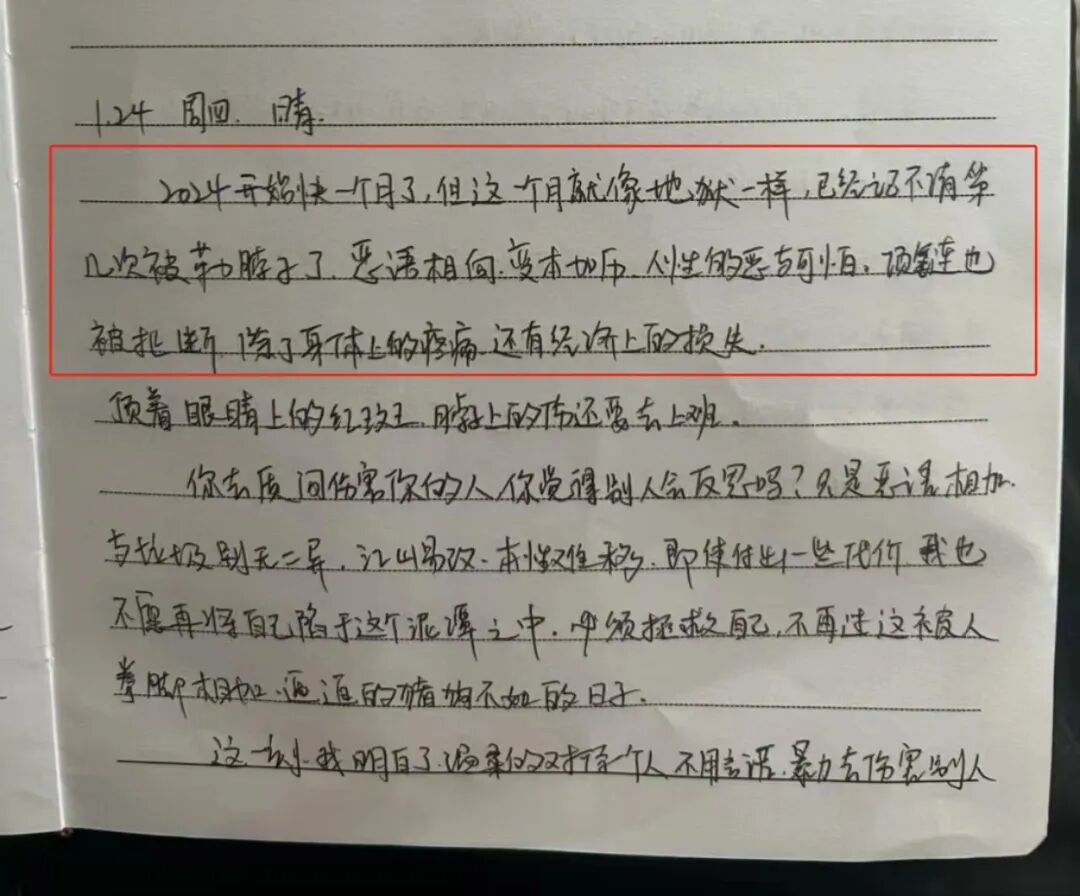 1.24 周四. 晴.
2024开始快一个月了,但这一个月就像地狱一样,已经记不清第
几次被勒脖子了.恶语相向.变本加厉.人性的恶与可怕。项链也
被扯断 除了身体上的疼痛 还有经济上的损失.
顶着眼睛上的红斑.脖子上的伤还要去上班.
你去质问伤害你的人,你觉得别人会反思吗?只是恶语相加.
与垃圾别无二异.江山易改.本性难移.即使付出一些代价 我也
不愿再将自己陷于这个泥潭之中.必须拯救自己,不再过这被人
拳脚相加.逼迫的猪狗不如的日子.
这一刻.我明白了温柔的对待个人 不用言语.暴力去伤害别人